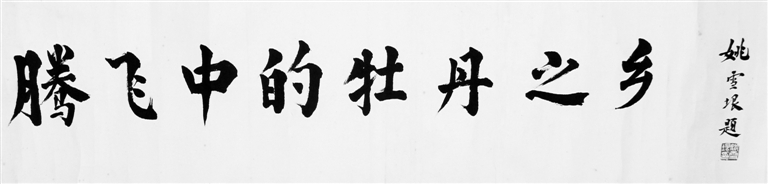 腾飞中的牡丹之乡
姚雪垠题